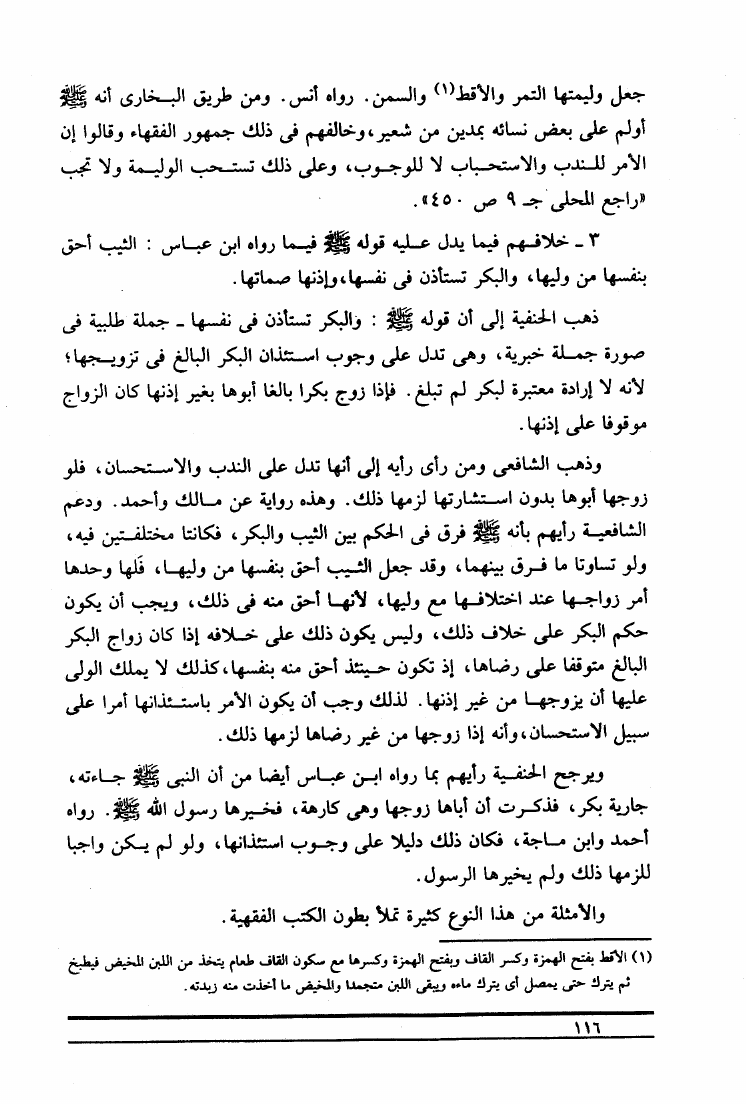 جعل وليمتها التمر والأقط(١) والسمن. رواه أنس. ومن طريق البخارى أنه ﷺ
أولم على بعض نسائه بمدين من شعير، وخالفهم فى ذلك جمهور الفقهاء وقالوا إن
الأمر للندب والاستحباب لا للوجوب، وعلى ذلك تستحب الوليمة ولا تجب
«راجع المحلى جـ ٩ ص ٤٥٠».
٣ ـ خلافهم فيما يدل عليه قوله ﷺ فيما رواه ابن عباس : الثيب أحق
بنفسها من وليها، والبكر تستأذن فى نفسها، وإذنها صماتها.
ذهب الحنفية إلى أن قوله ﷺ : والبكر تستأذن فى نفسها ـ جملة طلبية فى
صورة جملة خبرية، وهى تدل على وجوب استئذان البكر البالغ فى تزويجها؛
لأنه لا إرادة معتبرة لبكر لم تبلغ. فإذا زوج بكرا بالغا أبوها بغير إذنها كان الزواج
موقوفا على إذنها.
وذهب الشافعى ومن رأى رأيه إلى أنها تدل على الندب والاستحسان، فلو
زوجها أبوها بدون استشارتها لزمها ذلك. وهذه رواية عن مالك وأحمد. ودعم
الشافعية رأيهم بأنه ﷺ فرق فى الحكم بين الثيب والبكر، فكانتا مختلفتين فيه،
ولو تساوتا ما فرق بينهما، وقد جعل الثيب أحق بنفسها من وليها، فلها وحدها
أمر زواجها عند اختلافها مع وليها، لأنها أحق منه فى ذلك، ويجب أن يكون
حكم البكر على خلاف ذلك، وليس يكون ذلك على خلافه إذا كان زواج البكر
البالغ متوقفا على رضاها، إذ تكون حينئذ أحق منه بنفسها، كذلك لا يملك الولى
عليها أن يزوجها من غير إذنها. لذلك وجب أن يكون الأمر باستئذانها أمرا على
سبيل الاستحسان، وأنه إذا زوجها من غير رضاها لزمها ذلك.
ويرجح الحنفية رأيهم بما رواه ابن عباس أيضا من أن النبى ﷺ جاءته،
جارية بكر، فذكرت أن أباها زوجها وهى كارهة، فخيرها رسول الله ﷺ. رواه
أحمد وابن ماجة، فكان ذلك دليلا على وجوب استئذانها، ولو لم يكن واجبا
للزمها ذلك ولم يخيرها الرسول.
والأمثلة من هذا النوع كثيرة تملأ بطون الكتب الفقهية.
(١) الأقط بفتح الهمزة وكسر القاف وبفتح الهمزة وكسرها مع سكون القاف طعام يتخذ من اللبن المخيض فيطبخ
ثم يترك حتى يمصل أى يترك ماءه ويبقى اللبن متجمدا والمخيض ما أخذت منه زبدته.
١١٦